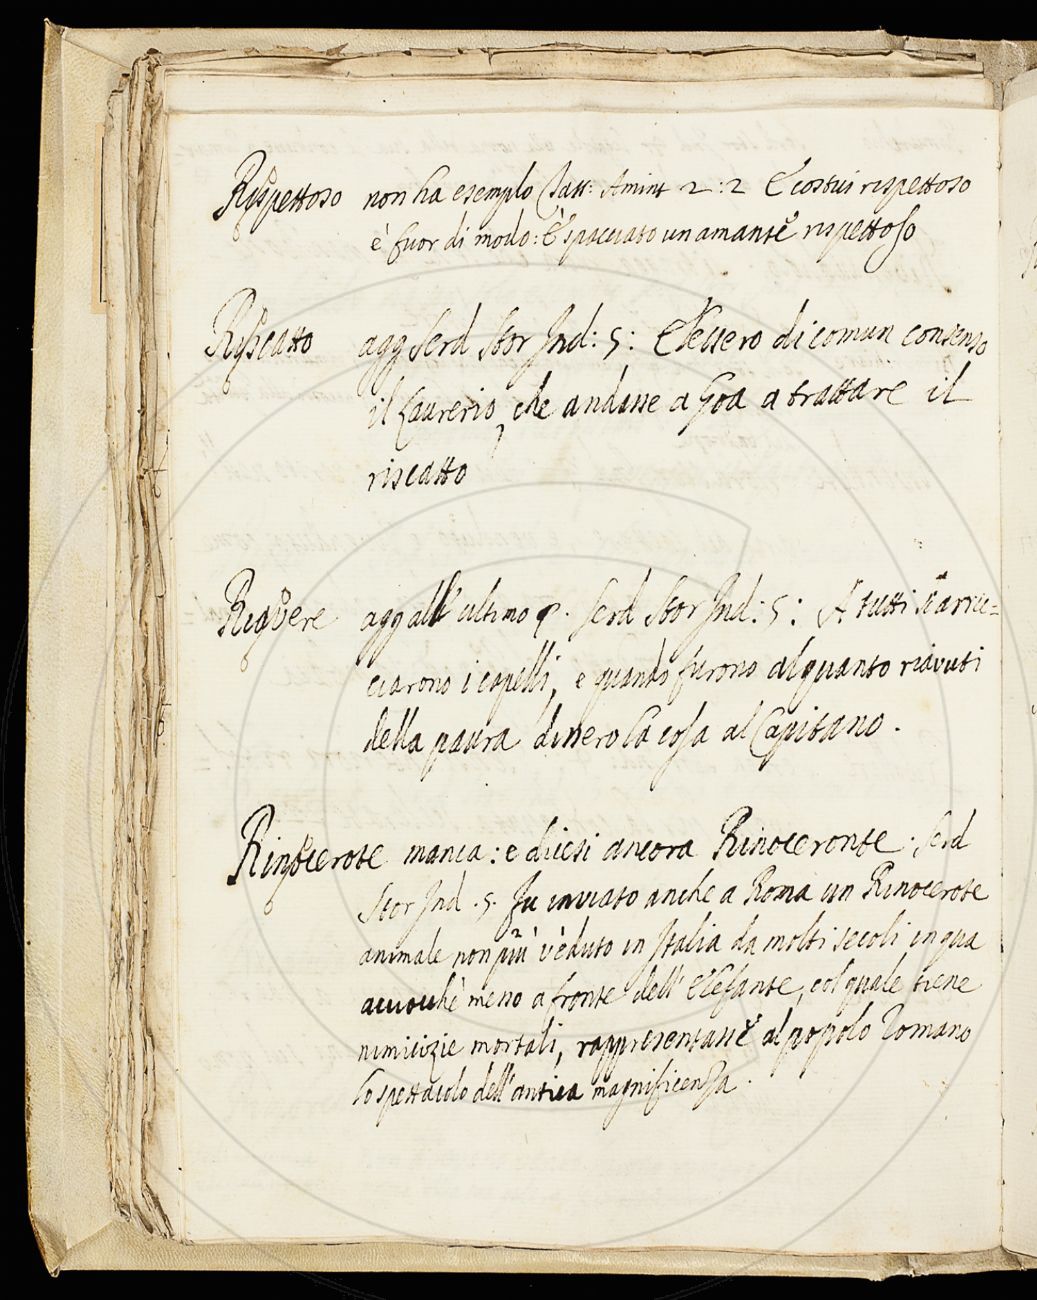 Rispettoso non ha esempio Tass: Amint 2:2 E costui rispettoso
è fuor di modo: È spacciato un amante rispettoso
Riscatto agg Serd Stor Ind: 5: Elessero di comun consenso
il Laurerio, che andasse a Goa a trattare il
riscatto
Riavere agg all' ultimo §. Serd Stor Ind: 5: A tutti si arric=
ciarono i capelli, e quando furono alquanto riavuti
della paura dissero la cosa al Capitano.
Rinocerote manca: e dicesi ancora Rinoceronte. Serd
Stor Ind. 5. Fu inviato anche a Roma un Rinocerote
animale non più veduto in Italia da molti secoli in qua
acciochè meno a fronte dell' Elefante, col quale tiene
nimicizie mortali, rappresentasse al popolo Romano
lo spettacolo dell' antica magnificenza.